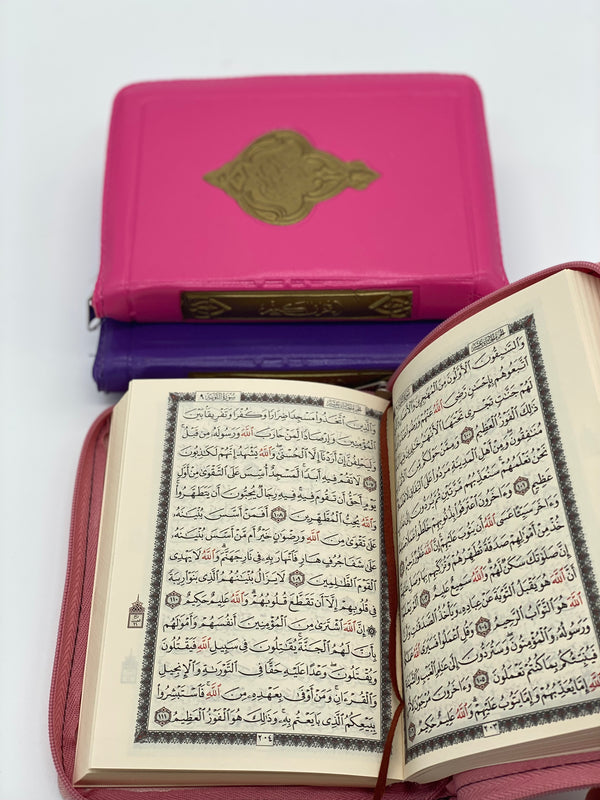 سُورَةُ التَّوْبَةِ ٩
وَالَّذِينَ اتَّخَذُوا مَسْجِدًا ضِرَارًا وَكُفْرًا وَتَفْرِيقًا بَيْنَ
الْمُؤْمِنِينَ وَإِرْصَادًا لِّمَنْ حَارَبَ اللَّهَ وَرَسُولَهُ مِن قَبْلُ
وَلَيَحْلِفُنَّ إِنْ أَرَدْنَا إِلَّا الْحُسْنَىٰ وَاللَّهُ يَشْهَدُ إِنَّهُمْ لَكَاذِبُونَ
١٠٧ لَا تَقُمْ فِيهِ أَبَدًا لَّمَسْجِدٌ أُسِّسَ عَلَى التَّقْوَىٰ مِنْ أَوَّلِ
يَوْمٍ أَحَقُّ أَن تَقُومَ فِيهِ فِيهِ رِجَالٌ يُحِبُّونَ أَن يَتَطَهَّرُوا
وَاللَّهُ يُحِبُّ الْمُطَّهِّرِينَ ١٠٨ أَفَمَنْ أَسَّسَ بُنْيَانَهُ
عَلَىٰ تَقْوَىٰ مِنَ اللَّهِ وَرِضْوَانٍ خَيْرٌ أَم مَّنْ أَسَّسَ بُنْيَانَهُ
عَلَىٰ شَفَا جُرُفٍ هَارٍ فَانْهَارَ بِهِ فِي نَارِ جَهَنَّمَ وَاللَّهُ لَا يَهْدِي
الْقَوْمَ الظَّالِمِينَ ١٠٩ لَا يَزَالُ بُنْيَانُهُمُ الَّذِي بَنَوْا رِيبَةً
فِي قُلُوبِهِمْ إِلَّا أَن تَقَطَّعَ قُلُوبُهُمْ وَاللَّهُ عَلِيمٌ حَكِيمٌ ١١٠
إِنَّ اللَّهَ اشْتَرَىٰ مِنَ الْمُؤْمِنِينَ أَنفُسَهُمْ وَأَمْوَالَهُم
بِأَنَّ لَهُمُ الْجَنَّةَ يُقَاتِلُونَ فِي سَبِيلِ اللَّهِ فَيَقْتُلُونَ
وَيُقْتَلُونَ وَعْدًا عَلَيْهِ حَقًّا فِي التَّوْرَاةِ وَالْإِنجِيلِ
وَالْقُرْآنِ وَمَنْ أَوْفَىٰ بِعَهْدِهِ مِنَ اللَّهِ فَاسْتَبْشِرُوا
بِبَيْعِكُمُ الَّذِي بَايَعْتُم بِهِ وَذَٰلِكَ هُوَ الْفَوْزُ الْعَظِيمُ ١١١
٢٠٤
وَالسَّابِقُونَ الْأَوَّلُونَ مِنَ الْمُهَاجِرِينَ وَالْأَنصَارِ
اتَّبَعُوهُم بِإِحْسَانٍ رَّضِيَ اللَّهُ عَنْهُمْ وَرَضُوا
لَهُمْ جَنَّاتٍ تَجْرِي تَحْتَهَا الْأَنْهَارُ
ذَٰلِكَ الْفَوْزُ الْعَظِيمُ ١٠٠ وَمِمَّنْ حَوْلَكُم
مُنَافِقُونَ وَمِنْ أَهْلِ الْمَدِينَةِ مَرَدُوا
نَحْنُ نَعْلَمُهُمْ سَنُعَذِّبُهُم مَّرَّتَيْنِ
عَظِيمٍ ١٠١ وَآخَرُونَ اعْتَرَفُوا بِذُنُوبِهِمْ خَلَطُوا
وَآخَرَ سَيِّئًا عَسَى اللَّهُ أَن يَتُوبَ عَلَيْهِمْ إِنَّ اللَّهَ
خُذْ مِنْ أَمْوَالِهِمْ صَدَقَةً تُطَهِّرُهُمْ وَتُزَكِّيهِم
إِنَّ صَلَاتَكَ سَكَنٌ لَّهُمْ وَاللَّهُ سَمِيعٌ عَلِيمٌ
أَنَّ اللَّهَ هُوَ يَقْبَلُ التَّوْبَةَ عَنْ عِبَادِهِ وَيَأْخُذُ الصَّدَقَاتِ
اللَّهَ هُوَ التَّوَّابُ الرَّحِيمُ ١٠٤ وَقُلِ اعْمَلُوا فَسَيَرَى اللَّهُ
وَرَسُولُهُ وَالْمُؤْمِنُونَ وَسَتُرَدُّونَ إِلَىٰ عَالِمِ الْغَيْبِ
فَيُنَبِّئُكُم بِمَا كُنتُمْ تَعْمَلُونَ ١٠٥ وَآخَرُونَ مُرْجَوْنَ
اللَّهِ إِمَّا يُعَذِّبُهُمْ وَإِمَّا يَتُوبُ عَلَيْهِمْ وَاللَّهُ عَلِيمٌ حَكِيمٌ
٢٠٣